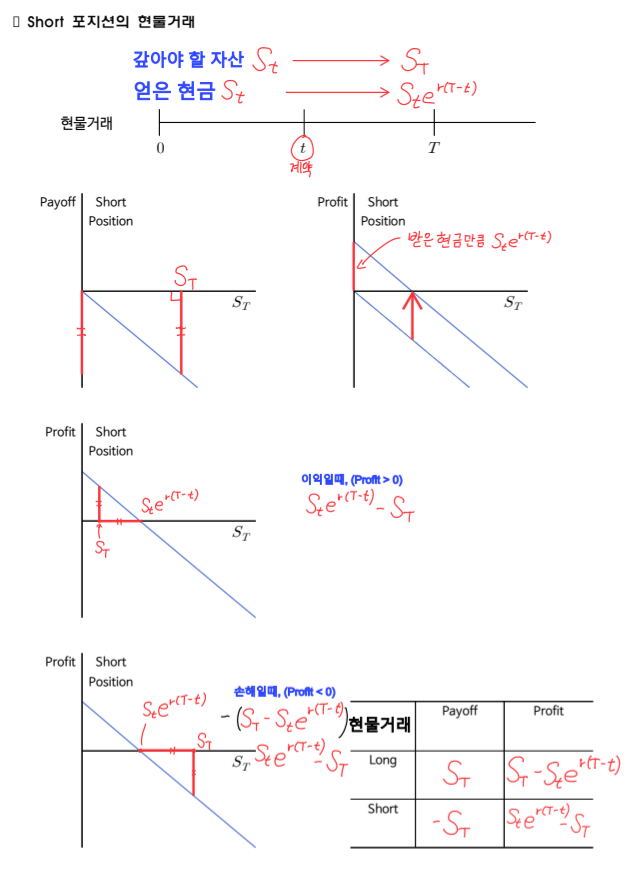 ▯ Short 포지션의 현물거래
갚아야 할 자산 S_t → S_T
얻은 현금 S_t → S_t e^{r(T-t)}
현물거래
0 t T
계약
Payoff Short Position
S_T
S_T
Profit Short Position
받은 현금만큼 S_t e^{r(T-t)}
S_T
Profit Short Position
S_t e^{r(T-t)}
S_T
S_T
이익일때, (Profit > 0)
S_t e^{r(T-t)} - S_T
Profit Short Position
S_t e^{r(T-t)}
S_T
S_T
손해일때, (Profit < 0)
- (S_T - S_t e^{r(T-t)})
S_t e^{r(T-t)} - S_T
현물거래 Payoff Profit
Long S_T S_T - S_t e^{r(T-t)}
Short -S_T S_t e^{r(T-t)} - S_T